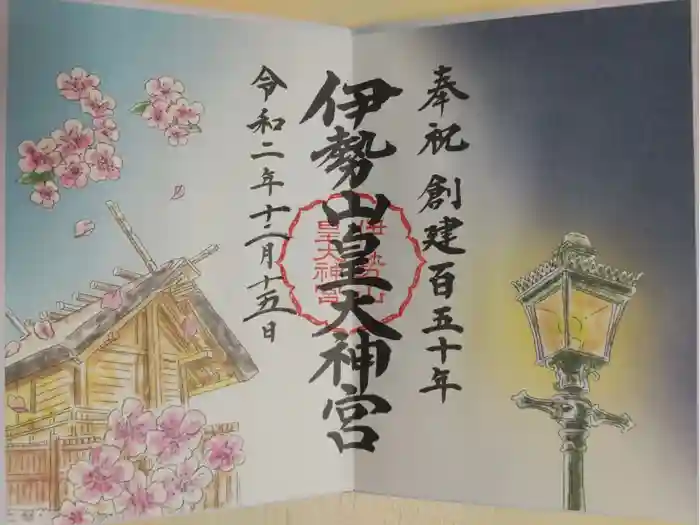 奉祝 創建百五十年
伊勢山皇大神宮
伊勢山
皇大神宮
令和二年十二月十五日